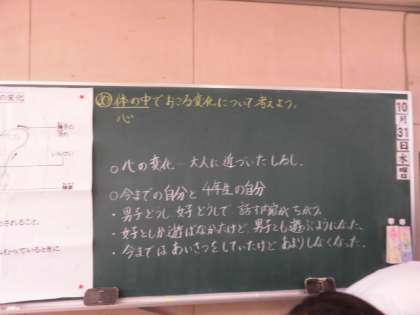 の変化
㋱体の中でおこる変化について考えよう。
心
○心の変化―大人に近づいたしるし。
○今までの自分と 4年度の自分
・男子どうし 女子どうしで 話す内容がちがう。
・女子としか遊ばなかったけど、男子とも遊ぶようになった。
・今まではあいさつをしていたけど あまりしなくなった。
10
月
31
日
水
曜